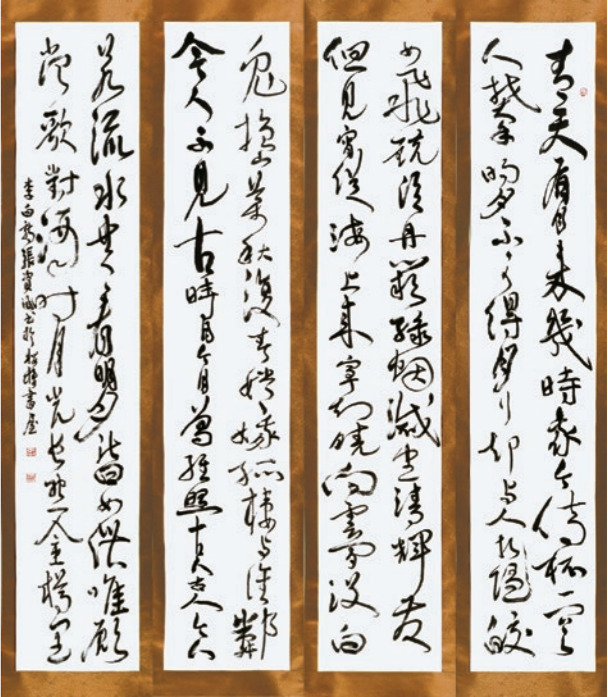 青天有月来幾時我今停杯一问之
人攀明月不可得月行却与人相随皎
如飞镜临丹阙绿烟滅尽清輝发
但見宵從海上来寧知曉向雲间没白
兔捣药秋復春嫦娥孤棲与谁鄰
今人不見古時月今月曾经照古人古人今人
若流水共看明月皆如此唯願
當歌對酒时月光长照金樽里
李白詩張 書於 書屋